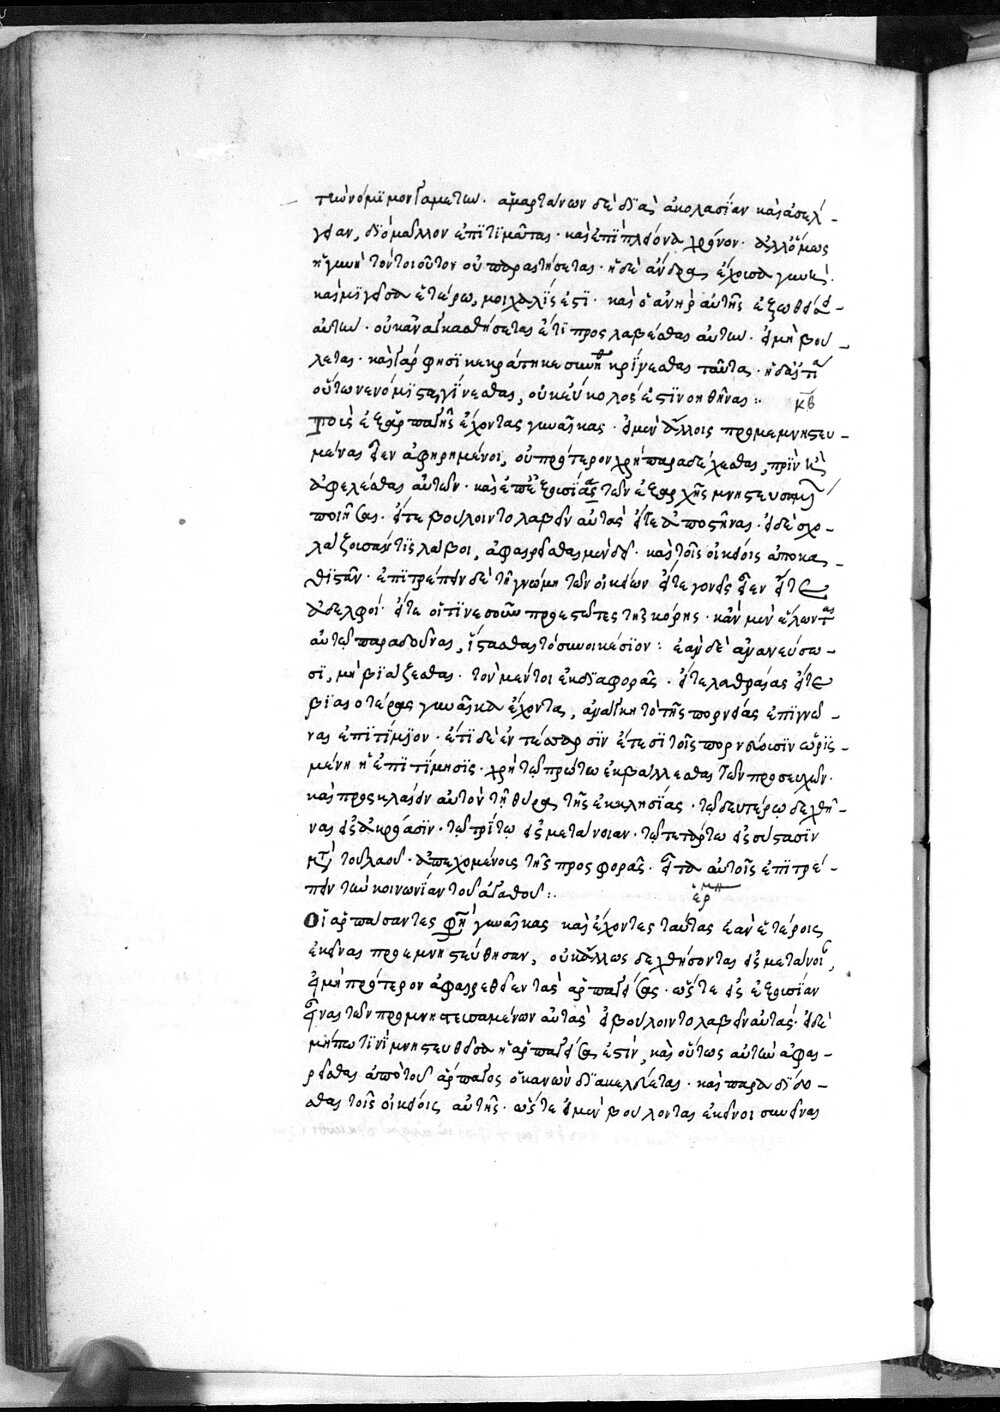 τῶ νομίμον γαμετων. ἁμαρτάνων δὲ διὰ ἀκολασίαν καὶ ἀσέλ-
γειαν, διὸ μᾶλλον ἐπιτιμᾶται. καὶ ἐπὶ πλείονα χρόνον. ἀλλ' ὅμως
ἡ γυνὴ τὸν τοιοῦτον οὐ παραιτήσεται. ἡ δὲ ἄνδρα ἔχουσα γυνὴ.
καὶ μιγεῖσα ἑτέρω, μοιχαλίς ἐστι. καὶ ὁ ἀνὴρ αὐτῆς ἐξωθεῖ
αὐτὴν. οὐκ ἀναγκασθήσεται ἔτι προσλαβέσθαι αὐτὴν. εἰ μὴ βού-
λεται. καὶ γάρ φησι κεκράτηκε συνηθ κρίνεσθαι ταῦτα. ἡ δὲ αἰτία
οὕτω νενόμισται γίνεσθαι, οὐκ εὔκολός ἐστι νοηθῆναι:
κβ
Τοὺς ἐξ ἁρπαγῆς ἔχοντας γυναῖκας. εἰ μὲν ἄλλοις προμεμνηστευ-
μένας εἶεν ἀφῃρημένοι, οὐ πρότερον χρὴ παραδέχεσθαι, πρὶν ἢ
ἀφελέσθαι αὐτῶν. καὶ ἐπ' ἐξουσίας τῶν ἐξ ἀρχῆς μνηστευσαμ
ποιῆσαι. εἴτε βούλοιντο λαβεῖν αὐτὰς εἴτε ἀποστῆναι. εἰ δὲ σχο-
λάζουσάν τις λάβοι, ἀφαιρεῖσθαι μὲν δεῖ. καὶ τοῖς οἰκείοις ἀποκα-
θιστᾶν. ἐπιτρέπειν δὲ τῇ γνώμῃ τῶν οἰκείων εἴτε γονεῖς εἶεν εἴτε
ἀδελφοὶ εἴτε οἵτινεσοῦν προεστῶτες τῆς κόρης. κἂν μὲν ἕλωνται
αὐτῷ παραδοῦναι, ἵστασθαι τὸ συνοικέσιον: ἐὰν δὲ ἀνανεύσω-
σι, μὴ βιάζεσθαι. τὸν μέντοι ἐκ διαφορᾶς. εἴτε λαθραίας εἴτε
βιαιοτέρας γυναῖκα ἔχοντα, ἀνάγκη τὸ τῆς πορνείας ἐπιγνῶ-
ναι ἐπιτίμιον. ἔστι δὲ ἐν τέσσαρσιν ἔτεσι τοῖς πορνεύουσιν ὡρισ-
μένη ἡ ἐπιτίμησις. χρὴ τῷ πρώτω ἐκβάλλεσθαι τῶν προσευχῶν.
καὶ προσκλαίειν αὐτὸν τῇ θύρα τῆς ἐκκλησίας. τῷ δευτέρῳ δεχθῆ-
ναι εἰς ἀκρόασιν. τῷ τρίτῳ εἰς μετάνοιαν. τῷ τετάρτω εἰς σύστασιν
μετὰ τοῦ λαοῦ. ἀπεχομένοις τῆς προσφορᾶς. εἶτα αὐτοῖς ἐπιτρέ-
πειν τὴν κοινωνίαν τοῦ ἀγαθοῦ:.
ἑρμη
Οἱ ἁρπάσαντες φησὶ γυναῖκας καὶ ἔχοντες ταύτας ἐὰν ἑτέροις
ἐκεῖναι προεμνηστεύθησαν, οὐκ ἄλλως δεχθήσονται εἰς μετάνοι,
εἰ μὴ πρότερον ἀφαιρεθεῖεν τὰς ἁρπαγείσας. ὥστε εἰς ἐξουσίαν
εἶναι τῶν προμνηστευσαμένων αὐτὰς εἰ βούλοιντο λαβεῖν αὐτάς. εἰ δὲ
μήπω τινὶ μνηστευθεῖσα ἡ ἁρπαγεῖσα ἐστὶν, καὶ οὕτως αὐτὴν ἀφαι-
ρεῖσθαι ἀπὸ τοῦ ἅρπαγος ὁ κανὼν διακελεύεται. καὶ παραδίδο-
σθαι τοῖς οἰκείοις αὐτῆς. ὥστε εἰ μὲν βούλονται ἐκεῖνοι συνεῖναι